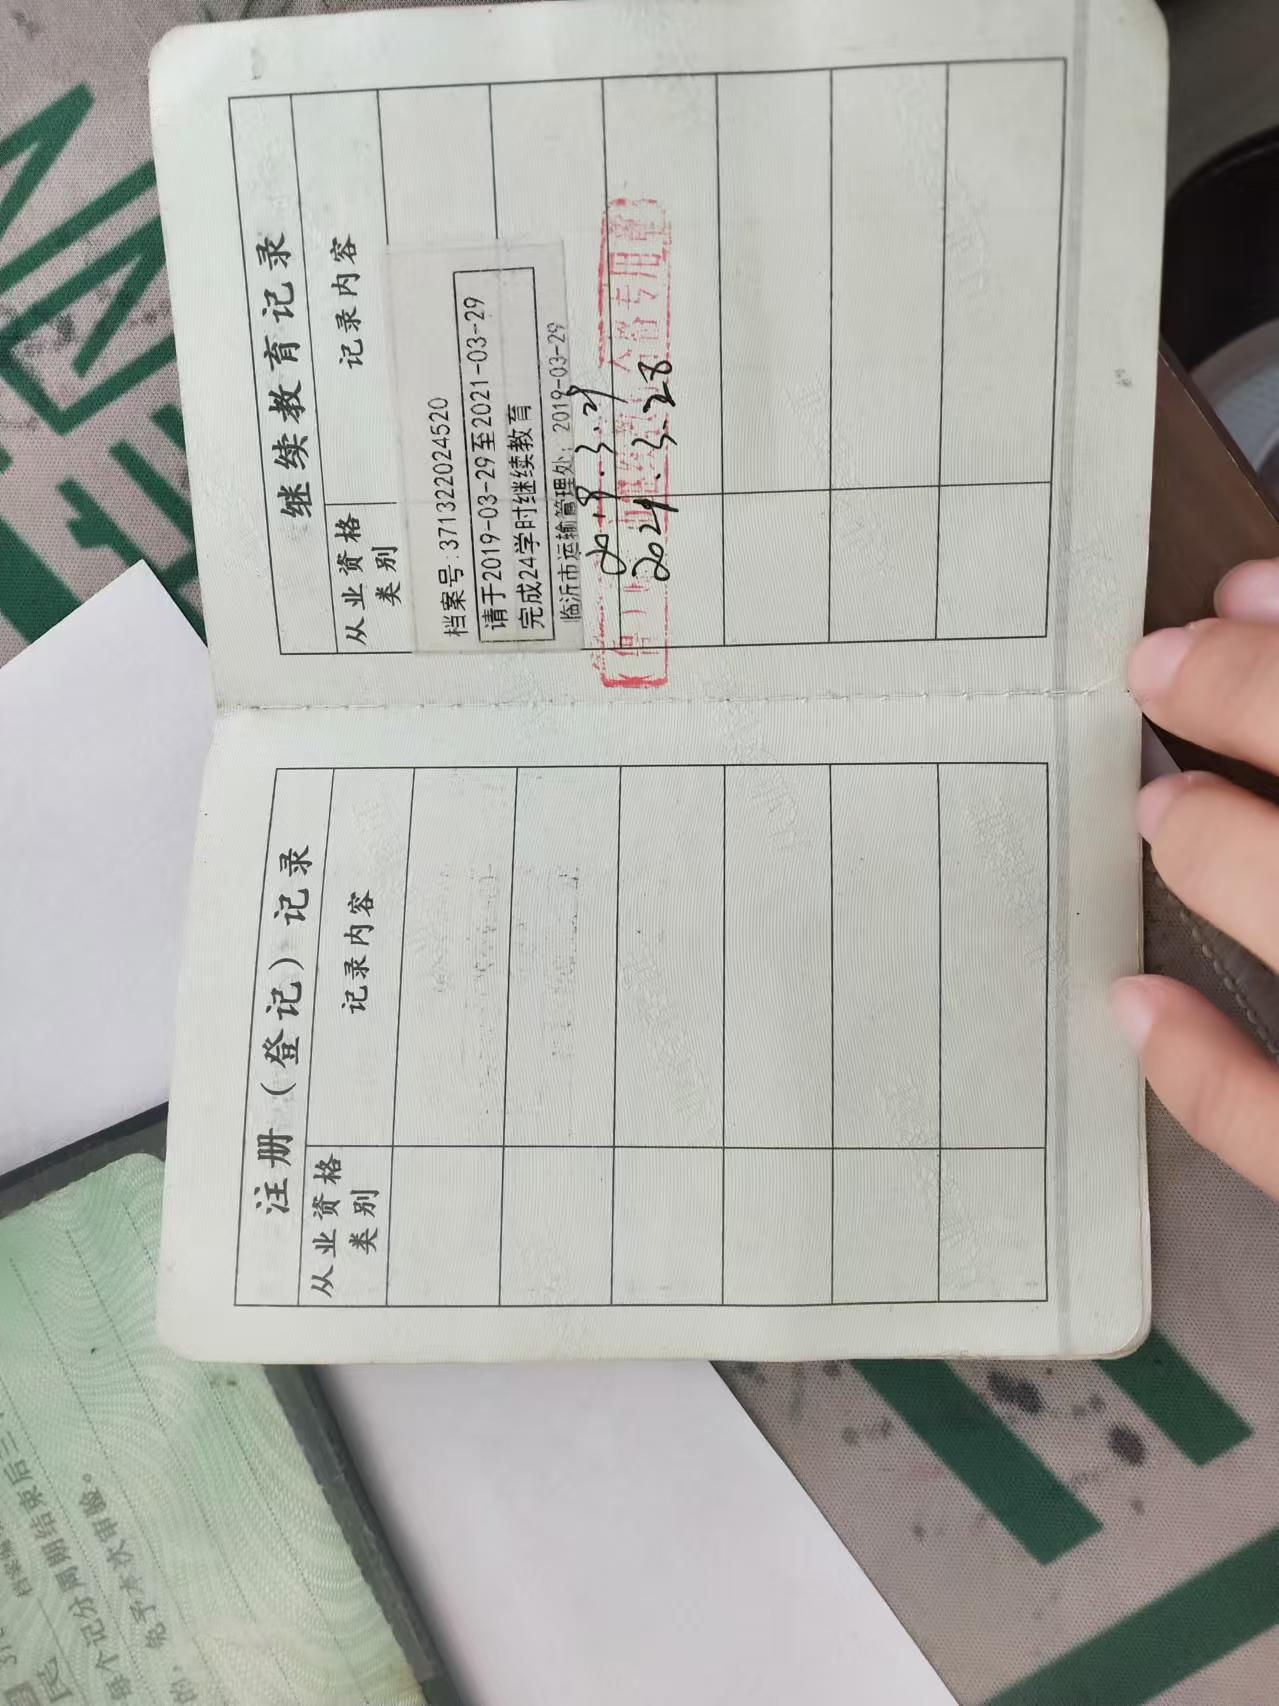 注册（登记）记录
从业资格
类别
记录内容
继续教育记录
从业资格
类别
记录内容
档案号:371322024520
请于2019-03-29至2021-03-29
完成24学时继续教育
临沂市运输管理处: 2019-03-29
2024.3.28
专用章
每个记分周期结束后三
免予本次审验。